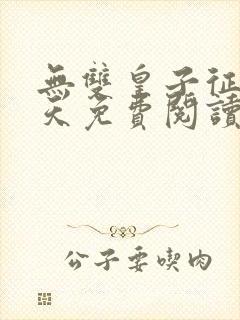 無雙皇子征
天免費閱讀
公子要喫肉